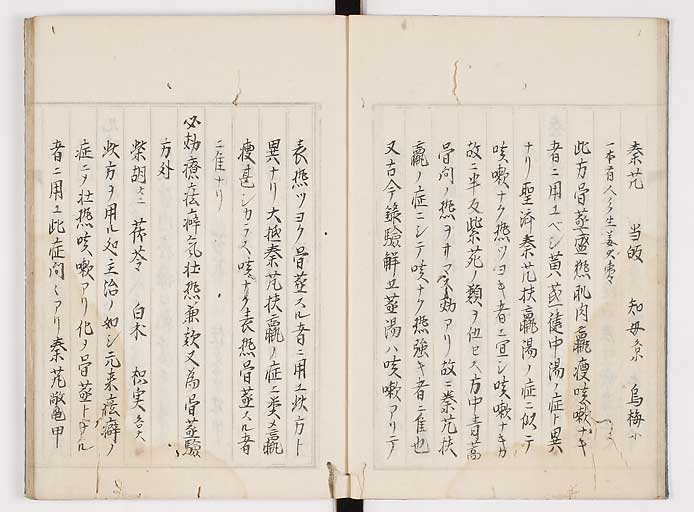 秦艽 当皈 知母 烏梅小
此方骨蒸盛𤍠肌肉羸痩咳嗽ナキ
者ニ用ユベシ黄芪建中湯ノ症ト異
ナリ聖済秦艽扶羸湯ノ症ニ似テ
咳嗽ナク𤍠ツヨキ者ニ宜シ咳嗽ナキカ
故ニ半夏紫苑ノ類ヲ伍セス方中青蒿
骨間ノ𤍠ヲ効アリ故ニ秦艽扶
羸ノ症ニシテ咳ナク𤍠強キ者ニ佳也
又古今録験解五蒸湯ハ咳嗽アリテ
表𤍠ツヨク骨蒸スル者ニ用ユ此方ト
異ナリ大抵秦艽扶羸ノ症ニ類メ羸
痩甚シカラス咳ナク表𤍠骨蒸スル者
ニ佳ナリ
必効療痃癖気壮𤍠兼咳又為骨蒸験
方外
柴胡 茯苓 白朮 枳実
此方ヲ用ル処主治ノ如シ元来痃癖ノ
症ニテ壮𤍠咳嗽アリ化ノ骨蒸トナル
者ニ用ユ此症間ニアリ秦艽鼈甲